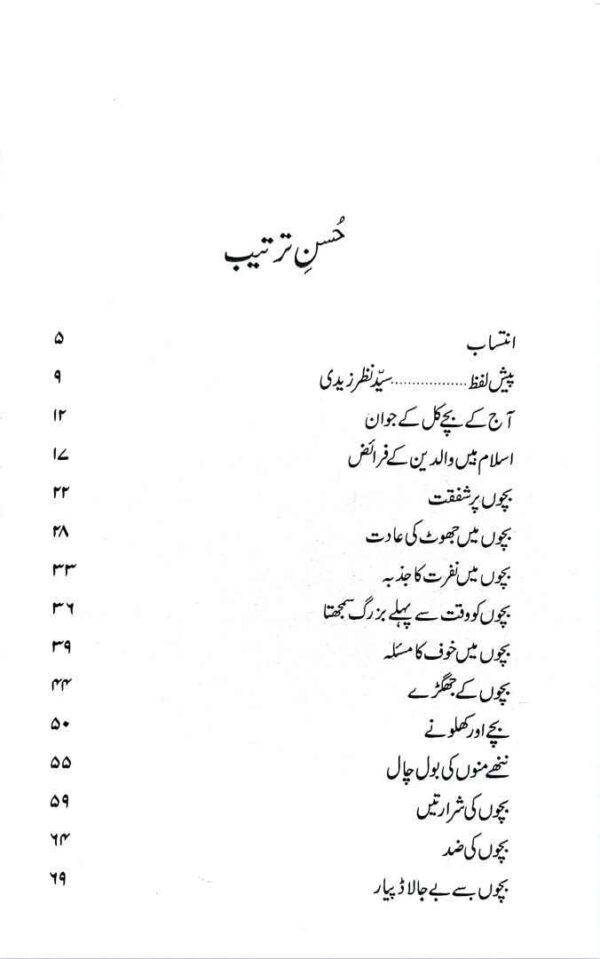 حُسنِ ترتیب
انتساب ۵
پیش لفظ .................. سیّد نظر زیدی ۹
آج کے بچے کل کے جوان ۱۲
اسلام میں والدین کے فرائض ۱۷
بچوں پر شفقت ۲۲
بچوں میں جھوٹ کی عادت ۲۸
بچوں میں نفرت کا جذبہ ۳۳
بچوں کو وقت سے پہلے بزرگ سمجھتا ۳۶
بچوں میں خوف کا مسئلہ ۳۹
بچوں کے جھگڑے ۴۴
بچے اور کھلونے ۵۰
ننھے منوں کی بول چال ۵۵
بچوں کی شرارتیں ۵۹
بچوں کی ضد ۶۴
بچوں سے بے جا لاڈ پیار ۶۹